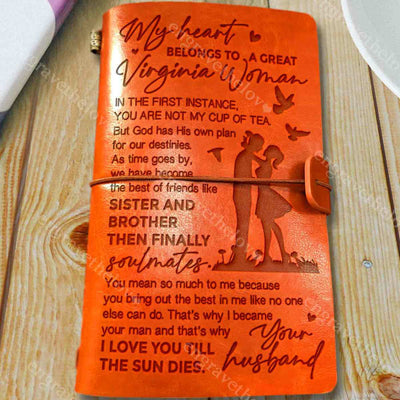 My heart
BELONGS TO A GREAT
Virginia Woman
IN THE FIRST INSTANCE,
YOU ARE NOT MY CUP OF TEA.
But God has His own plan
for our destinies.
As time goes by,
we have become
the best of friends like
SISTER AND
BROTHER
THEN FINALLY
soulmates.
You mean so much to me because
you bring out the best in me like no one
else can do. That's why I became
your man and that's why
I LOVE YOU TILL
THE SUN DIES.
Your
husband
engravethelove